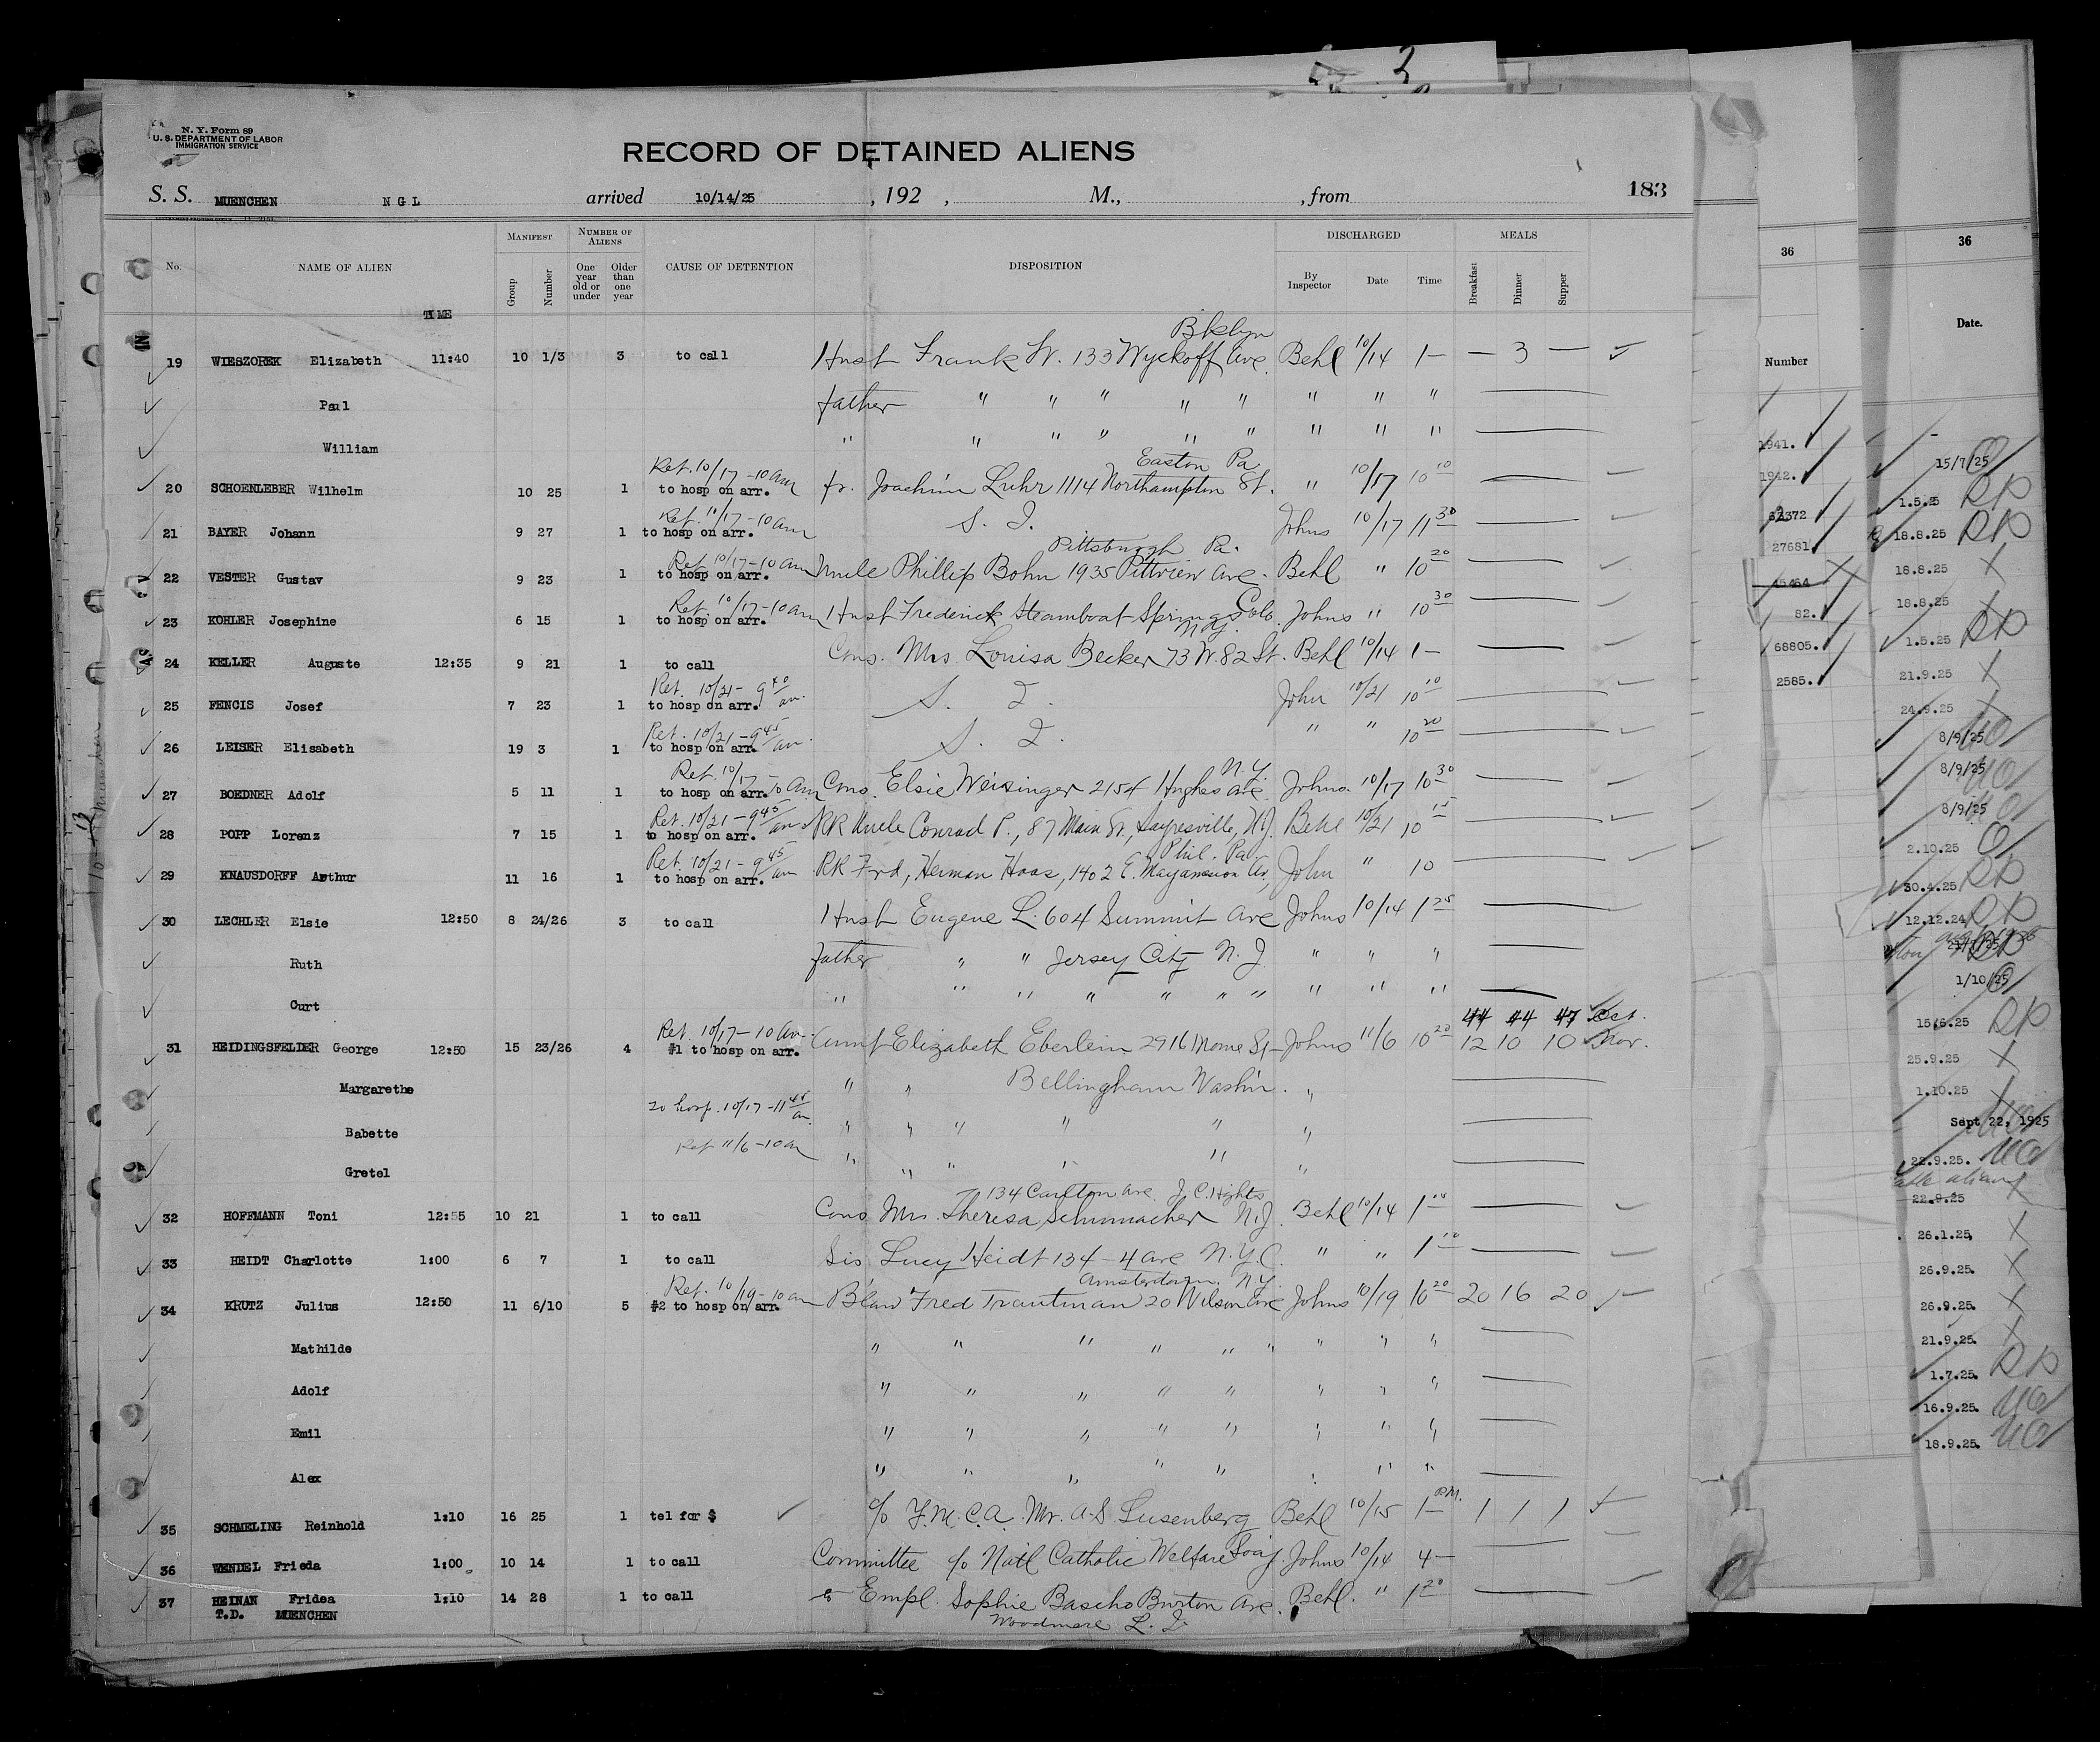 N. Y. Form 89
U. S. DEPARTMENT OF LABOR
IMMIGRATION SERVICE
RECORD OF DETAINED ALIENS
S. S. MUENCHEN N G L arrived 10/14/25, 192 , M., , from 183
No. NAME OF ALIEN MANIFEST Group Number NUMBER OF ALIENS One year old or under Older than one year CAUSE OF DETENTION DISPOSITION DISCHARGED By Inspector Date Time MEALS Breakfast Dinner Supper
TIME
Bklyn
19 WIESZOREK Elizabeth 11:40 10 1/3 3 to call Husb Frank W. 133 Wyckoff Ave. Behl 10/14 1— — 3 —
Paul father " " " " " " " "
William " " " " " " " " "
Ret. 10/17 - 10 am Easton Pa
20 SCHOENLEBER Wilhelm 10 25 1 to hosp on arr. fr. Joachim Luhr 1114 Northampton St. " 10/17 10 10
Ret. 10/17 - 10 am
21 BAYER Johann 9 27 1 to hosp on arr. S. I. Johns 10/17 11 30
Ret 10/17-10 am Pittsburgh Pa.
22 VESTER Gustav 9 23 1 to hosp on arr. Uncle Phillip Bohn 1935 Pittview Ave. Behl " 10 20
Ret. 10/17-10 am
23 KOHLER Josephine 6 15 1 to hosp on arr. Husb Frederick Steamboat Springs Colo. Johns " 10 30
N.Y.
24 KELLER Auguste 12:35 9 21 1 to call Cous. Mrs. Louisa Becker 73 W. 82 St. Behl 10/14 1—
Ret. 10/21 - 9 40 am.
25 FENCIS Josef 7 23 1 to hosp on arr. S. I. John 10/21 10 10
Ret. 10/21 - 9 45 am.
26 LEISER Elisabeth 19 3 1 to hosp on arr. S. I. " " 10 20
Ret. 10/17 - 10 am N.Y.
27 BOEDNER Adolf 5 11 1 to hosp on arr. Cous. Elsie Weisinger 2154 Hughes Ave. Johns. 10/17 10 30
Ret. 10/21 - 9 45 am
28 POPP Lorenz 7 15 1 to hosp on arr. RR Uncle Conrad P., 87 Main St., Sayresville, N.J. Behl 10/21 10 15
Ret. 10/21 - 9 45 am Phil. Pa.
29 KNAUSDORFF Arthur 11 16 1 to hosp on arr. RR Frd, Herman Haas, 1402 E. Av., John " 10
30 LECHLER Elsie 12:50 8 24/26 3 to call Husb Eugene L. 604 Summit Ave Johns 10/14 1 25
Ruth father " " Jersey City N. J. " " "
Curt " " " " " " " " " "
Ret. 10/17 - 10 am 44 44 47 Oct.
31 HEIDINGSFELDER George 12:50 15 23/26 4 #1 to hosp on arr. Aunt Elizabeth Eberlein 2916 St— Johns 11/6 10 20 12 10 10 Nov.
Margarethe " " Bellingham Washn. "
to hosp. 10/17 - 11 45 am.
Babette " " " " " "
Ret 11/6 - 10 am
Gretel " " " " " "
134 Carlton Ave. J. C. Hights
32 HOFFMANN Toni 12:55 10 21 1 to call Cous Mrs. Theresa Schumacher N.J. Behl 10/14 1
33 HEIDT Charlotte 1:00 6 7 1 to call Sis Lucy Heidt 134 - 4 Ave N.Y.C. " " 1 10
Ret. 10/19 - 10 am Amsterdam. N.Y.
34 KRUTZ Julius 12:50 11 6/10 5 #2 to hosp on arr. B'law Fred Trautman 20 Wilson Ave Johns 10/19 10 20 20 16 20
Mathilde " " " " " " " " "
Adolf " " " " " " " "
Emil " " " " " " " "
Alex " " " " " " " "
35 SCHMELING Reinhold 1:10 16 25 1 tel for $ c/o Y.M.C.A. Mr. A. S. Lusenberg Behl 10/15 1— P.M. 1 1 1
36 WENDEL Frieda 1:00 10 14 1 to call Committee c/o Natl Catholic Welfare Johns 10/14 4—
37 HEINAN Fridea 1:10 14 28 1 to call Empl. Sophie Bascho Burton Ave. Behl. " 1 20
T.D. MUENCHEN Woodmere L. I.
36
Number
1941.
1942.
27681
82.
68805.
2585.
36
Date.
15/7/25
1.5.25
18.8.25
18.8.25
18.8.25
1.5.25
21.9.25
24.9.25
8/9/25
8/9/25
8/9/25
2.10.25
30.4.25
12.12.24
1/10/25
15.6.25
25.9.25
1.10.25
Sept 22, 1925
22.9.25.
22.9.25
26.1.25.
26.9.25.
26.9.25.
21.9.25.
1.7.25.
16.9.25.
18.9.25.